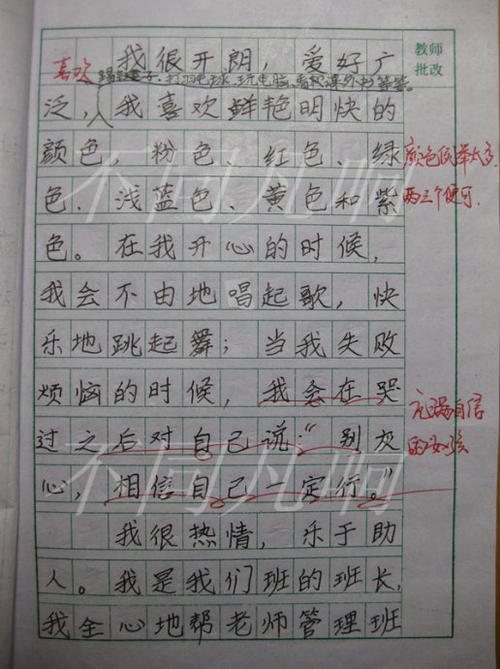 教师
批改
我很开朗，爱好广
喜欢
踢毽子、打羽毛球、玩电脑、看课外书等等。
泛，我喜欢鲜艳明快的
颜色，粉色、红色、绿
颜色例举太多，
色、浅蓝色、黄色和紫
两三个便可.
色。在我开心的时候，
我会不由地唱起歌，快
乐地跳起舞；当我失败
烦恼的时候，我会在哭
充满自信
过之后对自己说：“别灰
的女孩
心，相信自己一定行。”
我很热情，乐于助
人。我是我们班的班长，
我全心地帮老师管理班
不同凡响
不同凡响